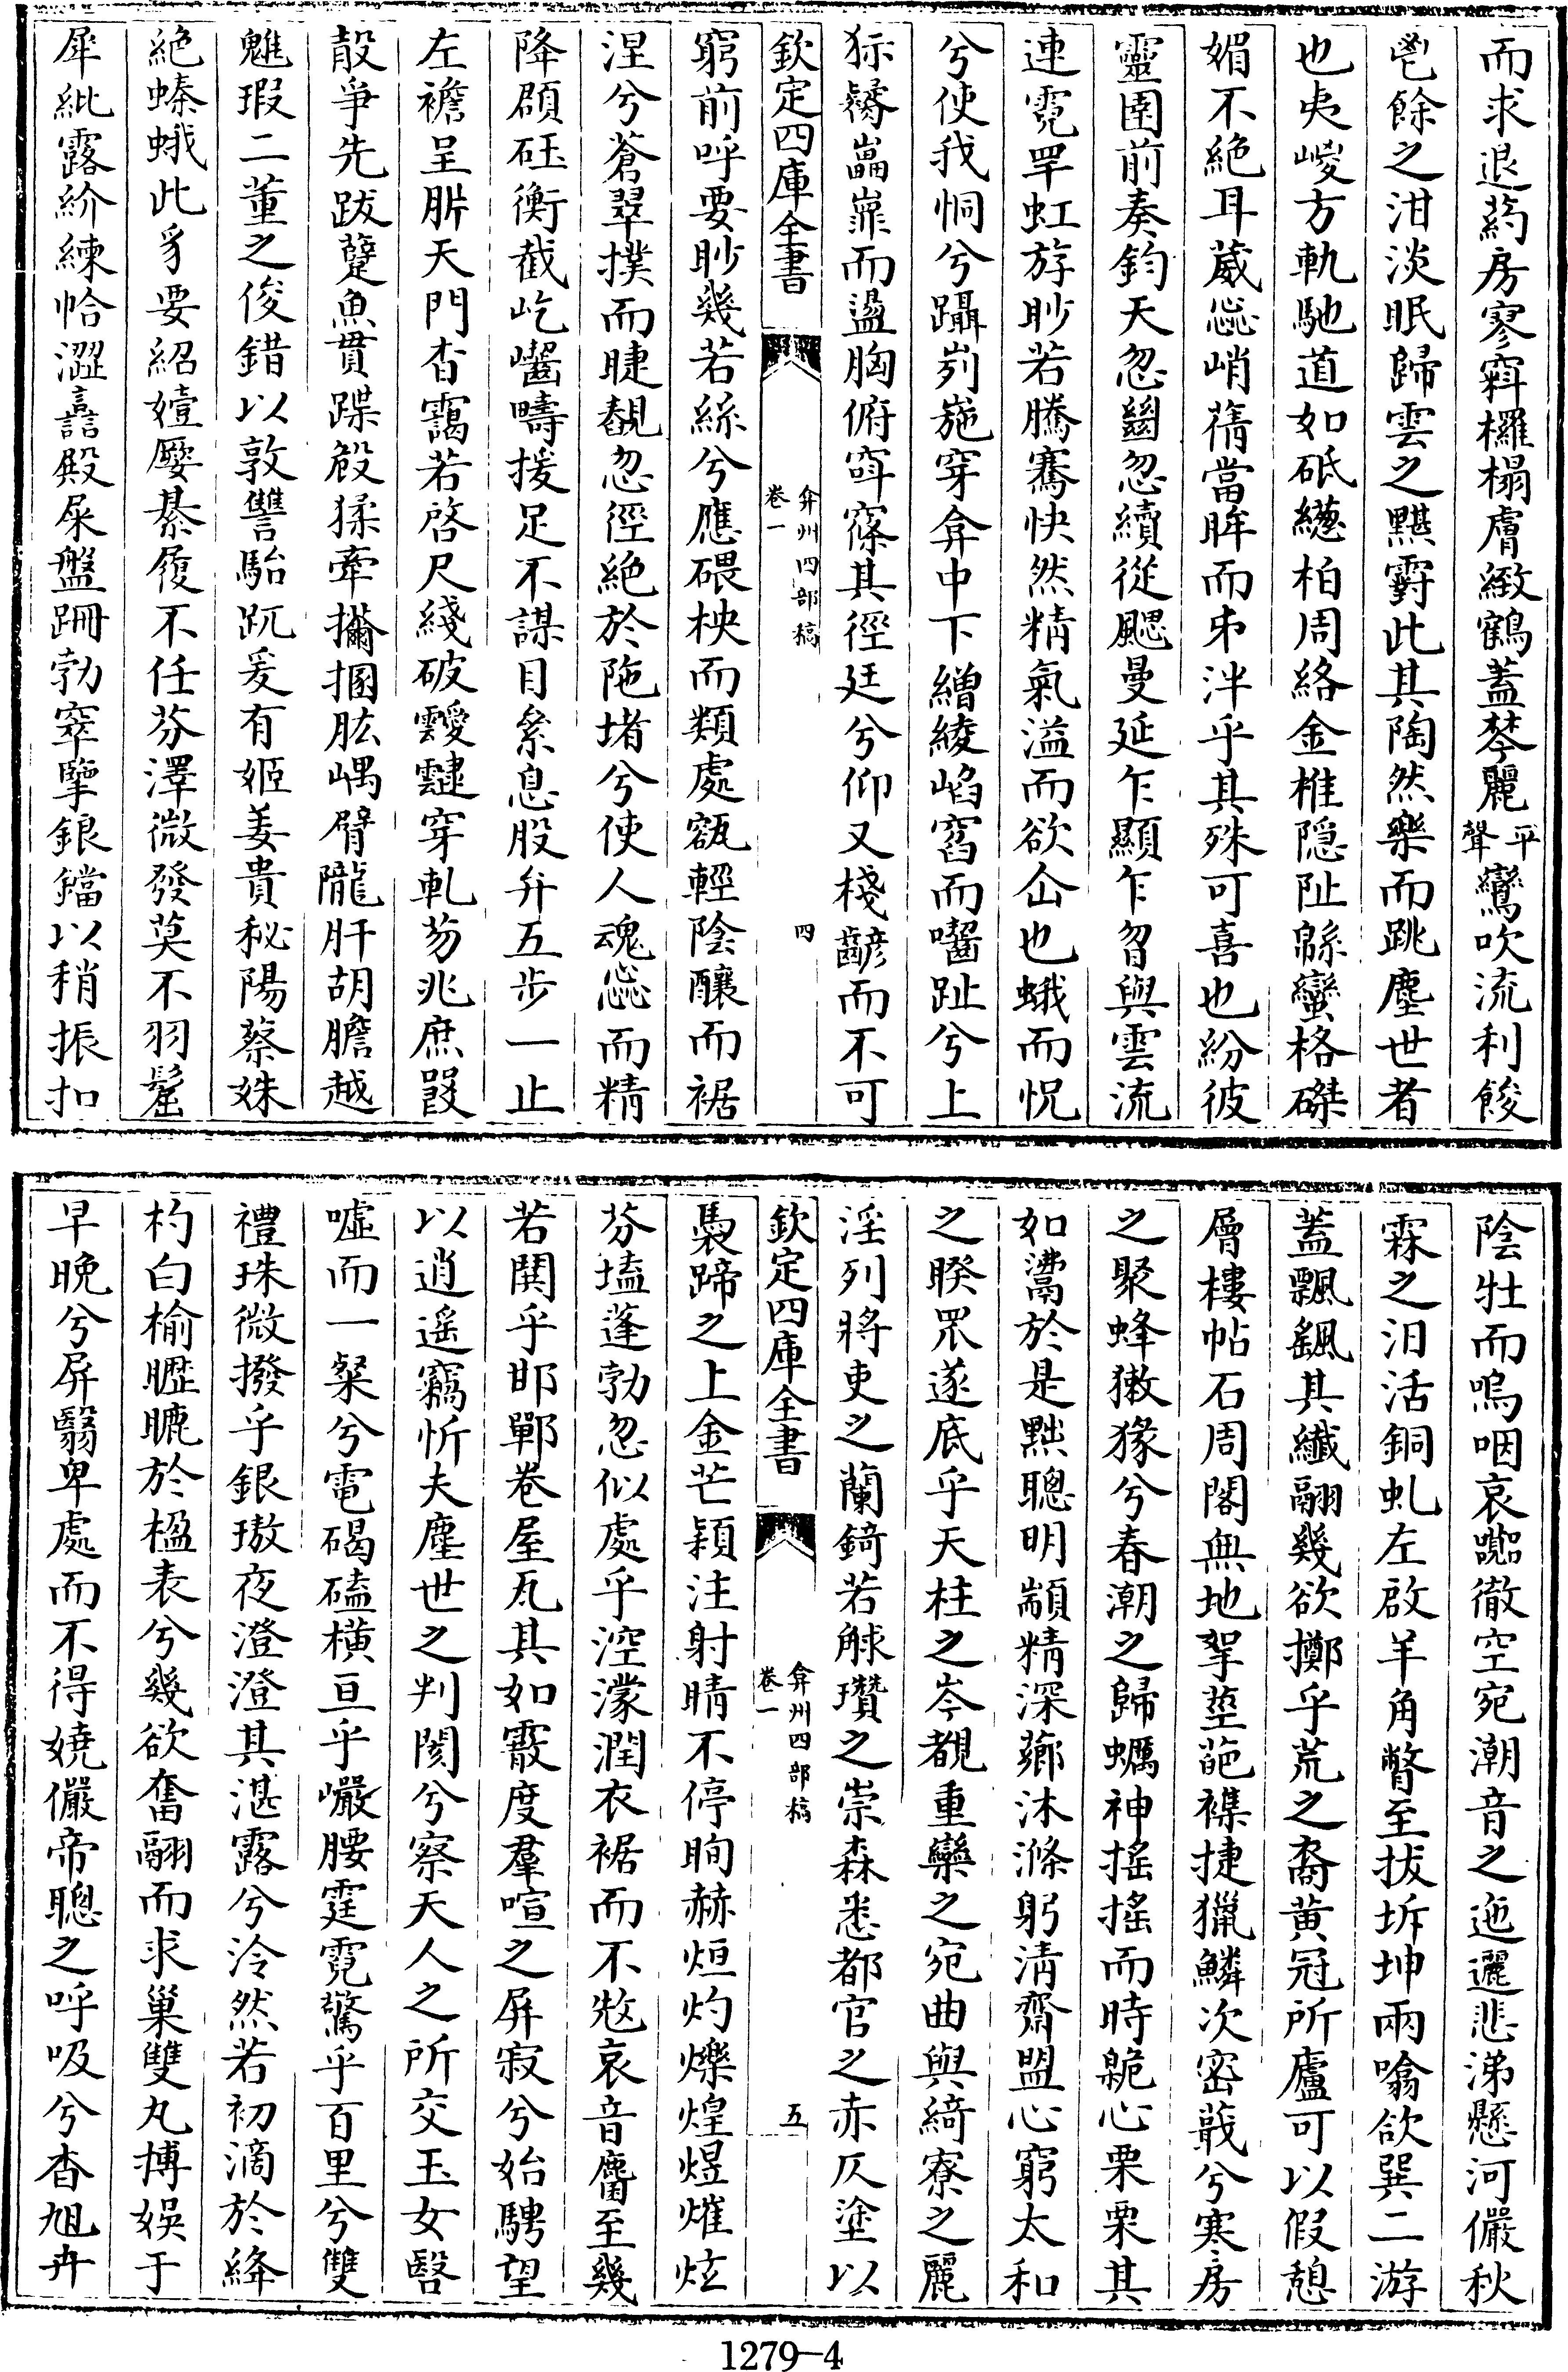 而求退葯房寥窲欏榻膚緻鶴蓋棽麗平聲鸞吹流利餕
鬯餘之泔淡眠歸雲之黮霨此其陶然樂而跳塵世者
也夷崚方軌馳道如砥繾柏周絡金椎隱阯緜蠻格磔
媚不絕耳葳蕊峭蒨當眸而布泮乎其殊可喜也紛彼
靈圉前奏鈞天忽斷忽續從颸曼延乍顯乍曶與雲流
連霓罕虹斿眇若騰騫快然精氣溢而欲仚也蛾而怳
兮使我恫兮躡峛崺穿弇中下繒綾㟋窞而囓趾兮上
狋䰐巋嶵而盪胸俯㝁窱其徑廷兮仰又棧齴而不可
欽定四庫全書 弇州四部稿 卷一 四
窮前呼要眇幾若絲兮應碨柍而類處瓻輕陰釀而裾
涅兮蒼翠撲而睫覩忽徑絕於阤堵兮使人魂蕊而精
降頵砡衡截屹㘖疇援足不謀目絫息股弁五步一止
左襜呈肵天門杳靄若啓尺綫破靉靆穿軋芴兆庶毀
㱿爭先跋躠魚貫蹀𣪘猱牽攡摑肱嵎臂隴肝胡膽越
魋瑕二董之俊錯以敦讐駘趴爰有姬姜貴秘陽蔡姝
絕螓蛾此豸要紹嬗嬮綦履不任芬澤微發莫不羽髦
犀紕露紒練帢澀譶殿屎盤跚勃窣擥鋃鐺以稍振扣
陰牡而嗚咽哀嘂徹空宛潮音之迤邐悲涕懸河儼秋
霖之汨活銅虬左啟羊角瞥至拔坼坤兩噏欱巽二游
蓋飄颻其纖翮幾欲擲乎荒之裔黃冠所廬可以假憩
層樓帖石周閣無地挐莖葩襍捷獵鱗次密戢兮寒房
之聚蜂獥猭兮春潮之歸蠣神搖搖而時㲉心栗栗其
如鬻於是黜聰明顓精深薌沐滌躬清齋盟心窮太和
之睽罛遂底乎天柱之岑覩重欒之宛曲與綺寮之麗
淫列將吏之蘭錡若觩瓚之崇森悉都官之赤仄塗以
欽定四庫全書 弇州四部稿 卷一 五
褭蹄之上金芒穎注射睛不停眴赫烜灼爍煌煜㸌炫
芬壒蓬勃忽似處乎涳濛潤衣裾而不攰哀音䴢至幾
若閧乎邯鄲卷屋瓦其如霰度羣喧之屏寂兮始騁望
以逍遥竊忻夫塵世之判閡兮察天人之所交玉女㗨
噓而一粲兮電碣磕橫亘乎巖腰霆霓驚乎百里兮雙
禮珠微撥乎銀璈夜澄澄其湛露兮泠然若初滴於絳
杓白榆㬣䁱於楹表兮幾欲奮翮而求巢雙丸搏娛于
早晚兮屏翳卑處而不得嬈儼帝聰之呼吸兮杳旭卉
1279-4